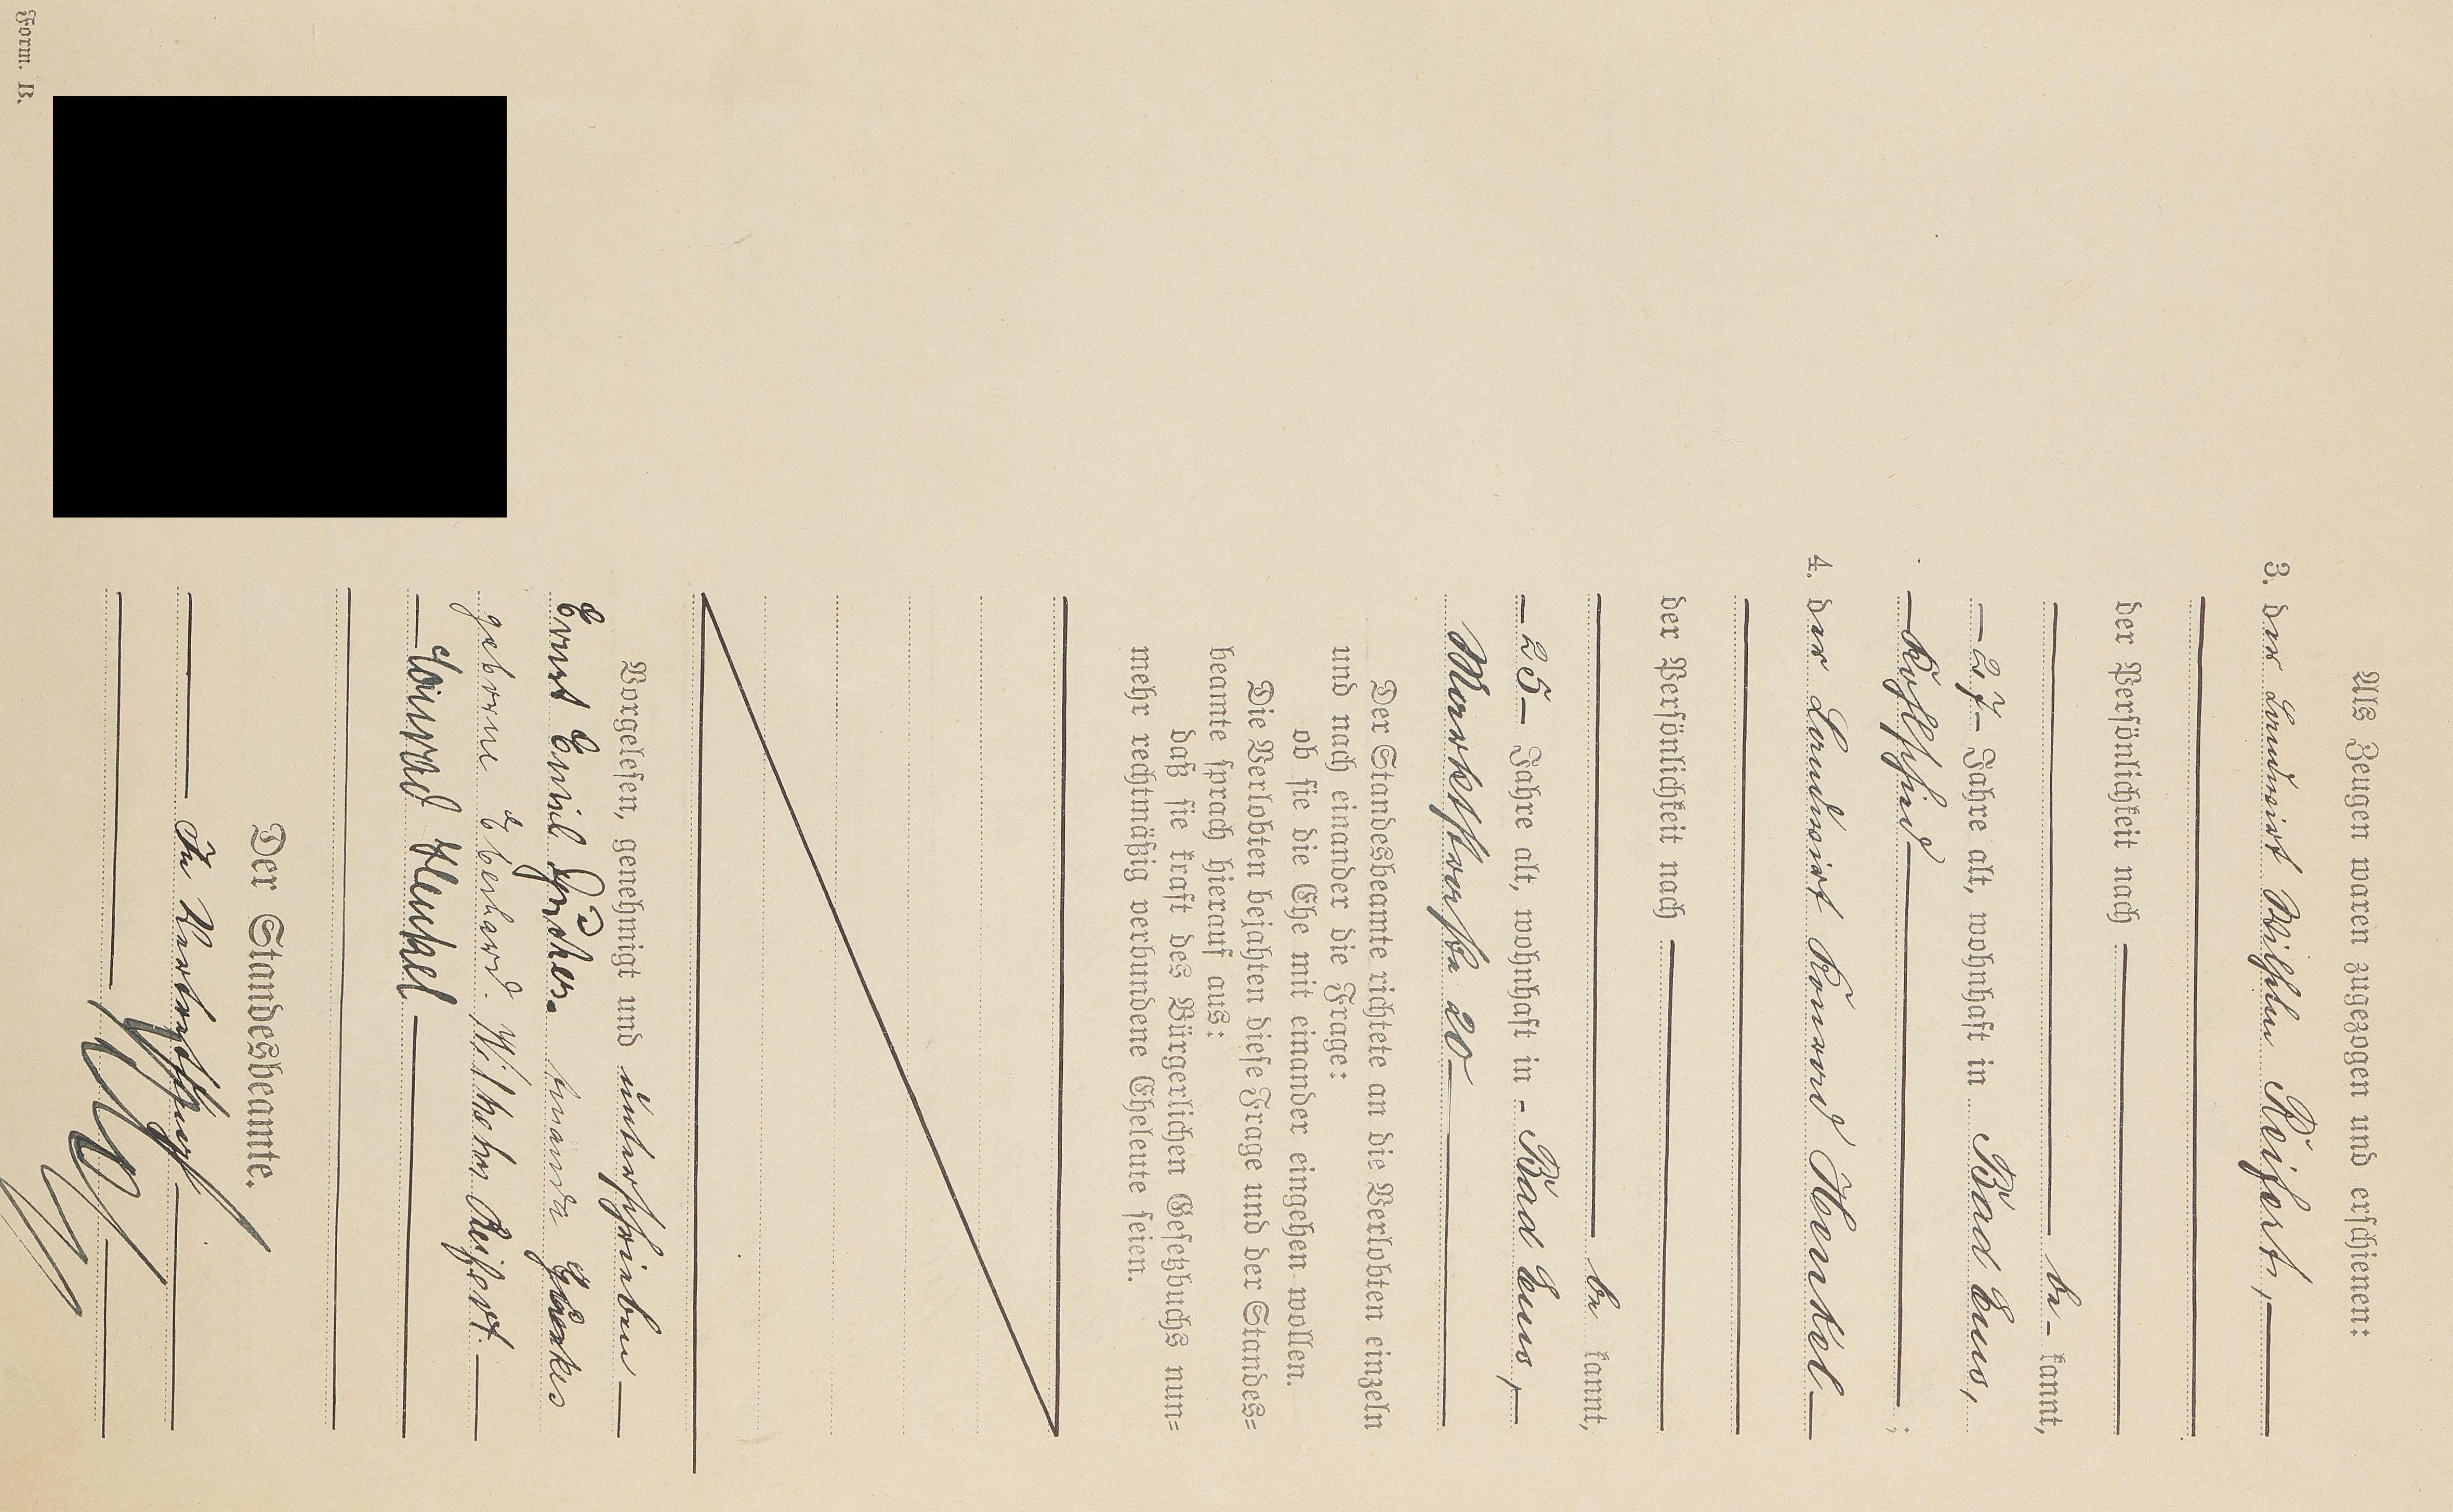 Als Zeugen waren zugezogen und erschienen:
3. der Landwirt Wilhelm Reifert,
der Persönlichkeit nach
be- kannt,
- 27 - Jahre alt, wohnhaft in Bad Ems,
4. der Landwirt Konrad Henkel
der Persönlichkeit nach
be kannt,
- 25 - Jahre alt, wohnhaft in - Bad Ems,
Marktstraße 20
Der Standesbeamte richtete an die Verlobten einzeln
und nach einander die Frage:
ob sie die Ehe mit einander eingehen wollen.
Die Verlobten bejahten diese Frage und der Standes=
beamte sprach hierauf aus:
daß sie kraft des Bürgerlichen Gesetzbuchs nun=
mehr rechtmäßig verbundene Eheleute seien.
Vorgelesen, genehmigt und unterschrieben
Ernst Emil
geborne Eberhard. Wilhelm Reifert.
Konrad Henkel
Der Standesbeamte.
In Vertretung
Form. B.